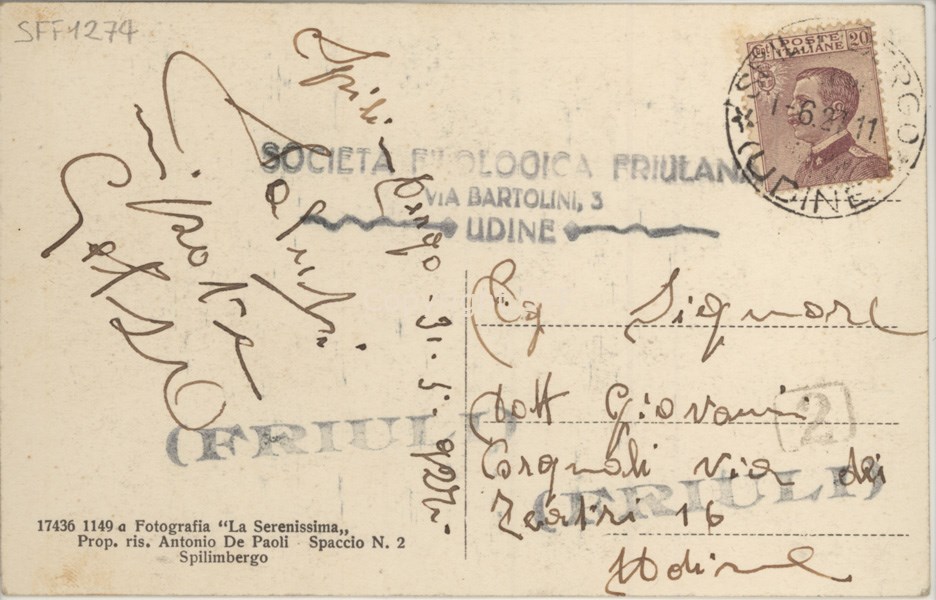 SFF1274
POSTE ITALIANE 20
1-6.27.11
(UDINE)
SOCIETÀ FILOLOGICA FRIULANA
VIA BARTOLINI, 3
UDINE
Spilimbergo - 31. 5. 927
Saluti
Egr Signore
Dott Giovanni
via dei
Teatri 16
Udine
2
(FRIULI)
(FRIULI)
17436 1149 a Fotografia "La Serenissima„
Prop. ris. Antonio De Paoli - Spaccio N. 2
Spilimbergo